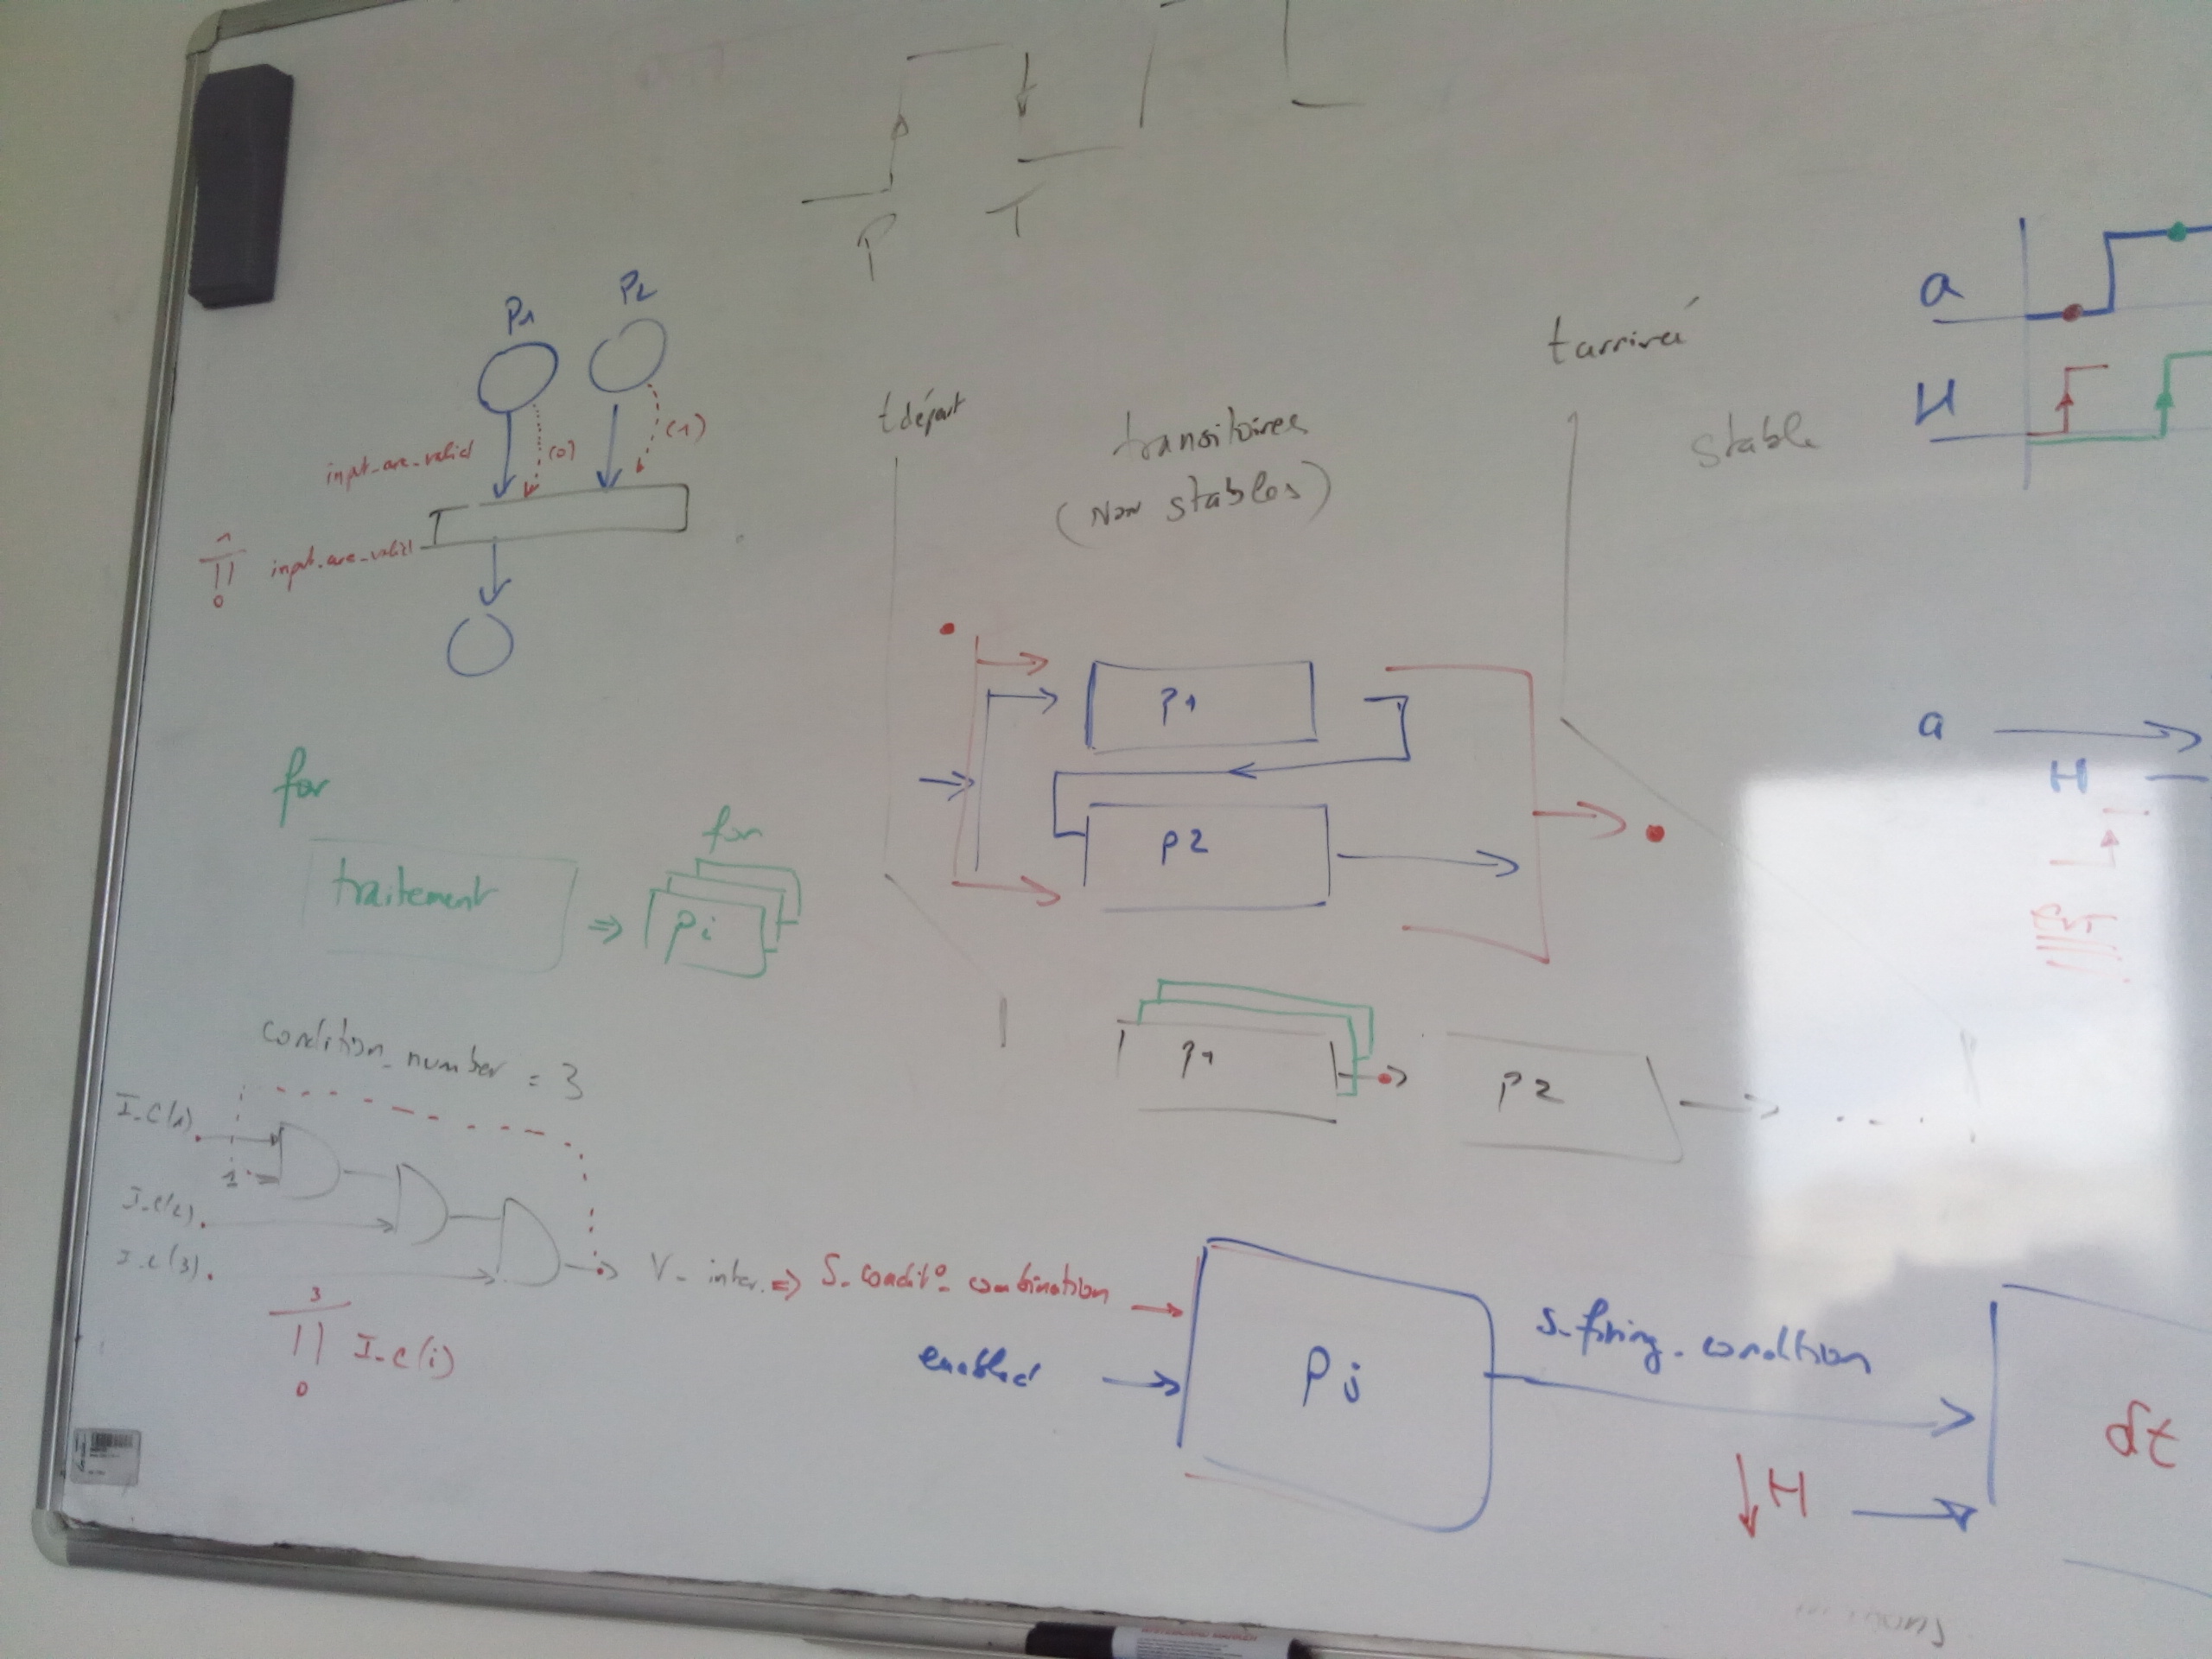 P T
P1 P2
input_are_valid (0) (1)
T
1
∏ input_are_valid
0
t départ
transitoires
(Non stables)
t arrivé
stable
a
H
for
traitement ⇒ for
Pi
P1
P2
a
H
P1 P2 . . . .
condition_number = 3
I_C(1)
1
I_C(2)
I_C(3)
V_inter. ⇒ S_condit°_combination
3
∏ I_C(i)
0
enabled
Pj
S_firing_condition
↓H
dt